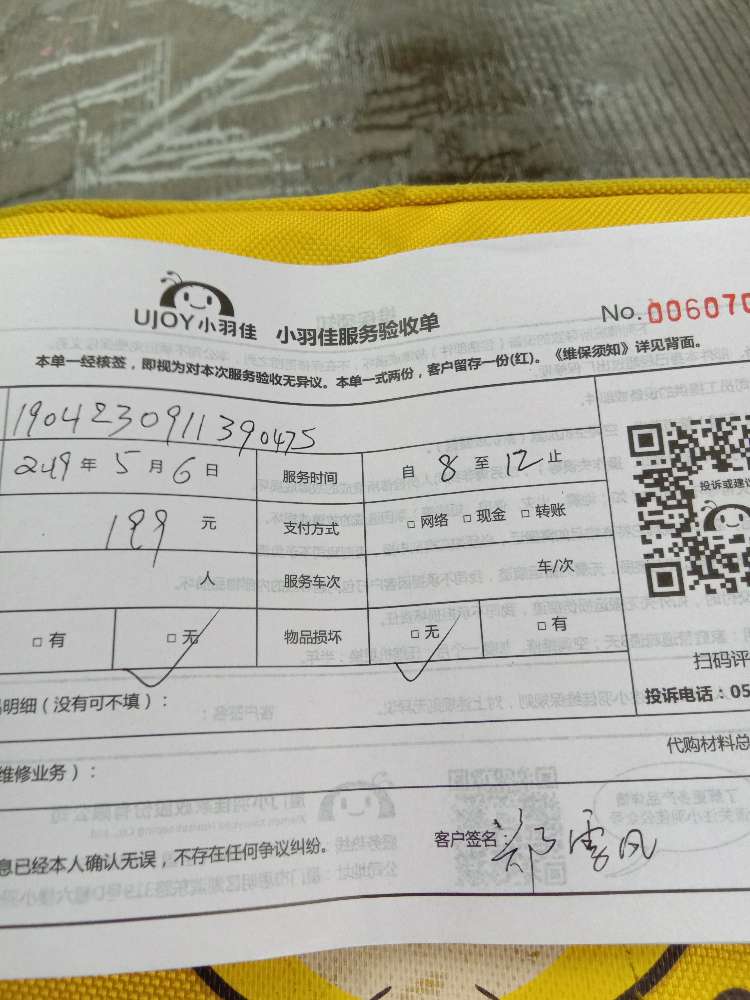 UJOY小羽佳 小羽佳服务验收单
No.006070
本单一经核签，即视为对本次服务验收无异议。本单一式两份，客户留存一份(红)。《维保须知》详见背面。
1904230911390475
2019年5月6日 服务时间 自8至12止
199元 支付方式 □网络 □现金 □转账
人 服务车次 车/次
□有 □无 物品损坏 □无 □有
投诉或建议
扫码评
投诉电话：05
明细（没有可不填）：
代购材料总
维修业务）：
息已经本人确认无误，不存在任何争议纠纷。
客户签名：